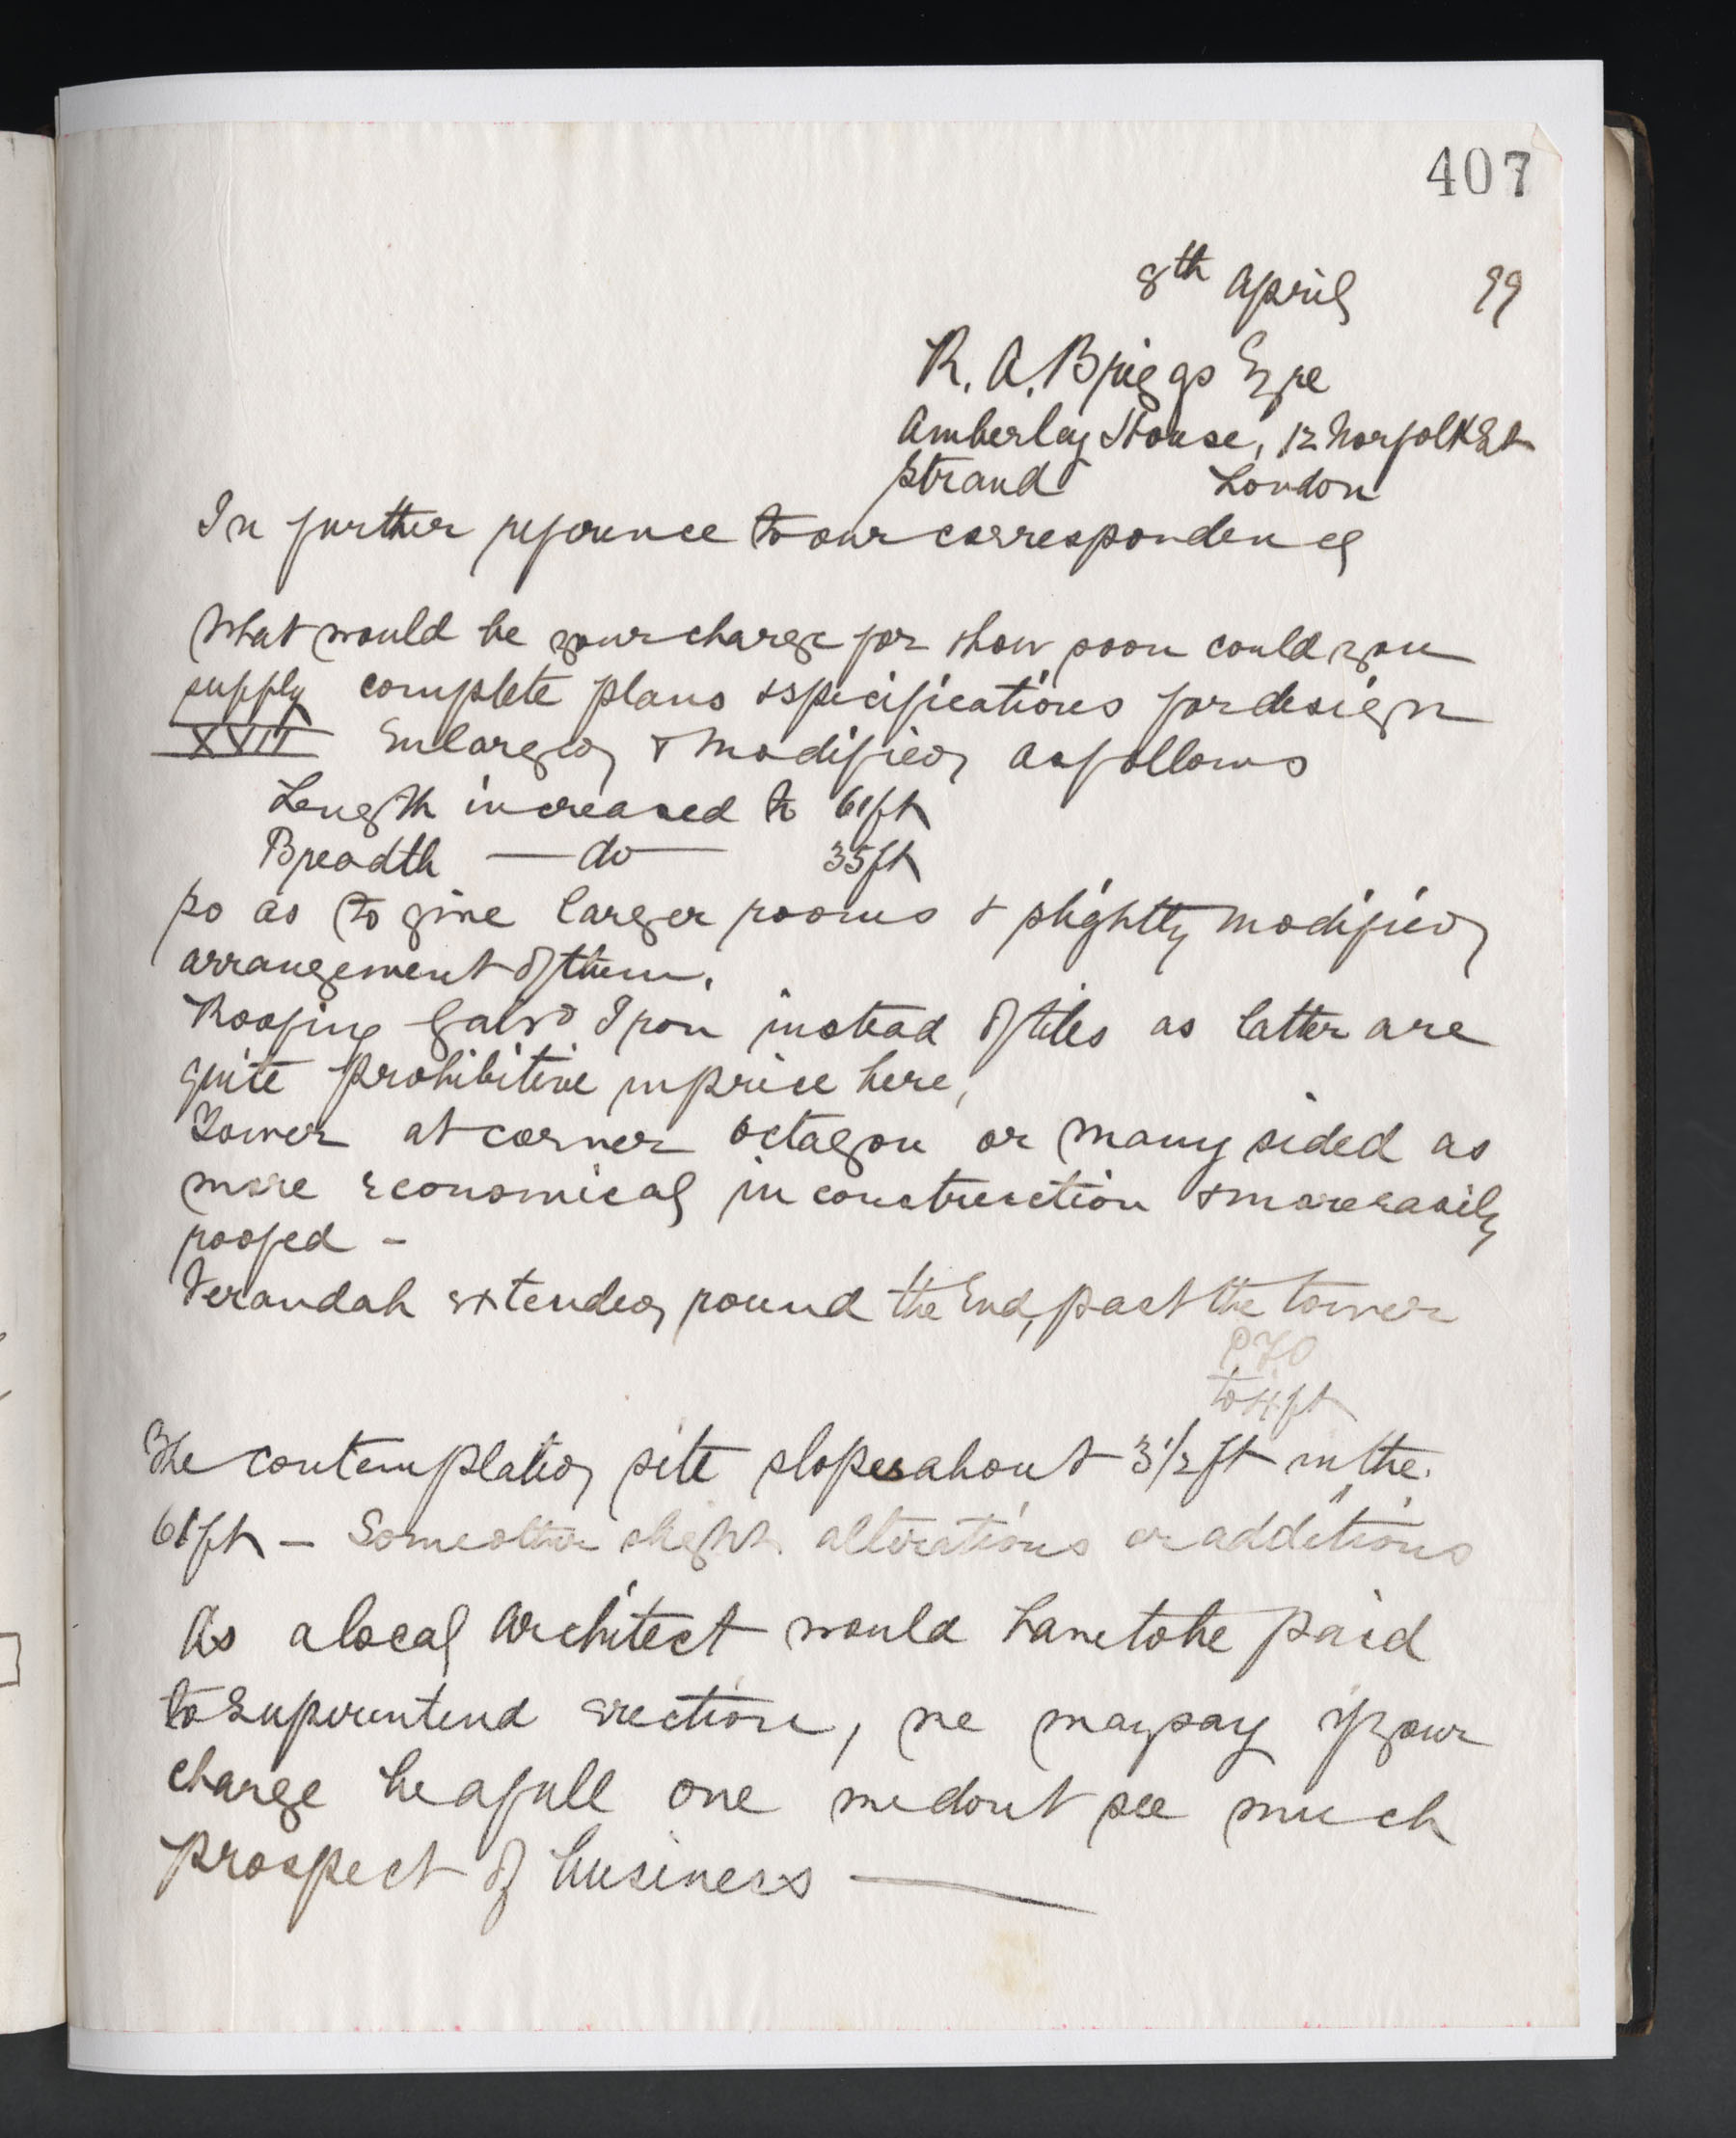 407
8th April 99
R. A. Briggs Esqre
Amberley House, 12 Norfolk St
Strand London
In further reference to our correspondence
What would be your charge for & how soon could you
supply complete plans & specifications for design
XVII Enlarged & Modified as follows
Length increased to 61ft
Breadth — do — 35ft
so as to give larger rooms & slightly modified
arrangement of them.
Roofing Galvd Iron instead of tiles as latter are
quite prohibitive in price here,
Tower at corner octagon or many sided as
more economical in construction & more easily
roofed -
Verandah extended round the End, past the tower
PTO
to 4ft
The contemplated site slopes about 3 1/2 ft in the
61ft - Some other slight alterations or additions
As a local Architect would have to be paid
to Superintend erection, we may say if your
charge be a full one we dont see much
prospect of business —